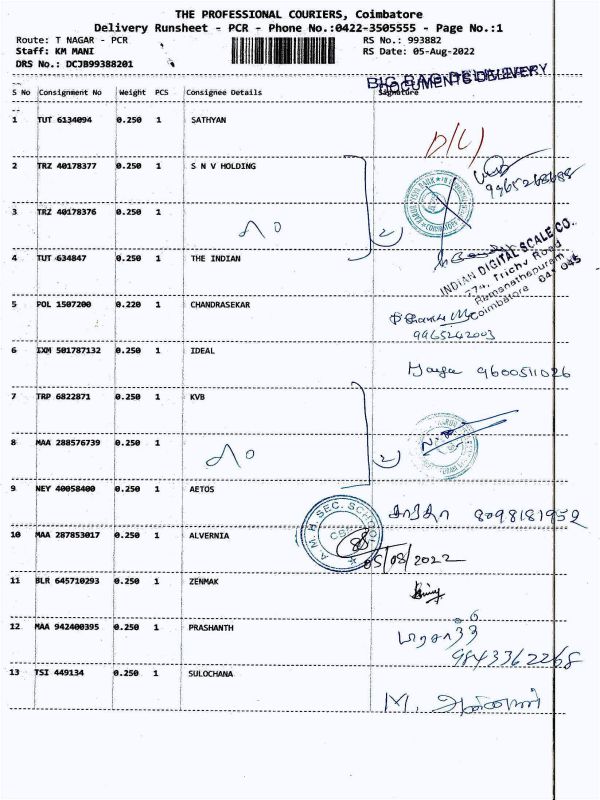 THE PROFESSIONAL COURIERS, Coimbatore
Delivery Runsheet - PCR - Phone No.:0422-3505555 - Page No.:1
Route: T NAGAR - PCR RS No.: 993882
Staff: KM MANI RS Date: 05-Aug-2022
DRS No.: DCJB99388201
BIG BAG DELIVERY
DOCUMENTS DELIVERY
S No Consignment No Weight PCS Consignee Details Signature
1 TUT 6134094 0.250 1 SATHYAN
D/L)
2 TRZ 40178377 0.250 1 S N V HOLDING
9365268688
3 TRZ 40178376 0.250 1
2
4 TUT 634847 0.250 1 THE INDIAN
INDIAN DIGITAL SCALE CO.
774, Trichy Road
Ramanathapuram
Coimbatore 641 045
5 POL 1507200 0.220 1 CHANDRASEKAR
9965242003
6 IXM 501787132 0.250 1 IDEAL
9600511026
7 TRP 6822871 0.250 1 KVB
8 MAA 288576739 0.250 1
2
9 NEY 40058400 0.250 1 AETOS
8098181952
10 MAA 287853017 0.250 1 ALVERNIA
A. M. H. SEC. SCHOOL
05/08/2022
11 BLR 645710293 0.250 1 ZENMAK
12 MAA 942400395 0.250 1 PRASHANTH
9843362268
13 TSI 449134 0.250 1 SULOCHANA